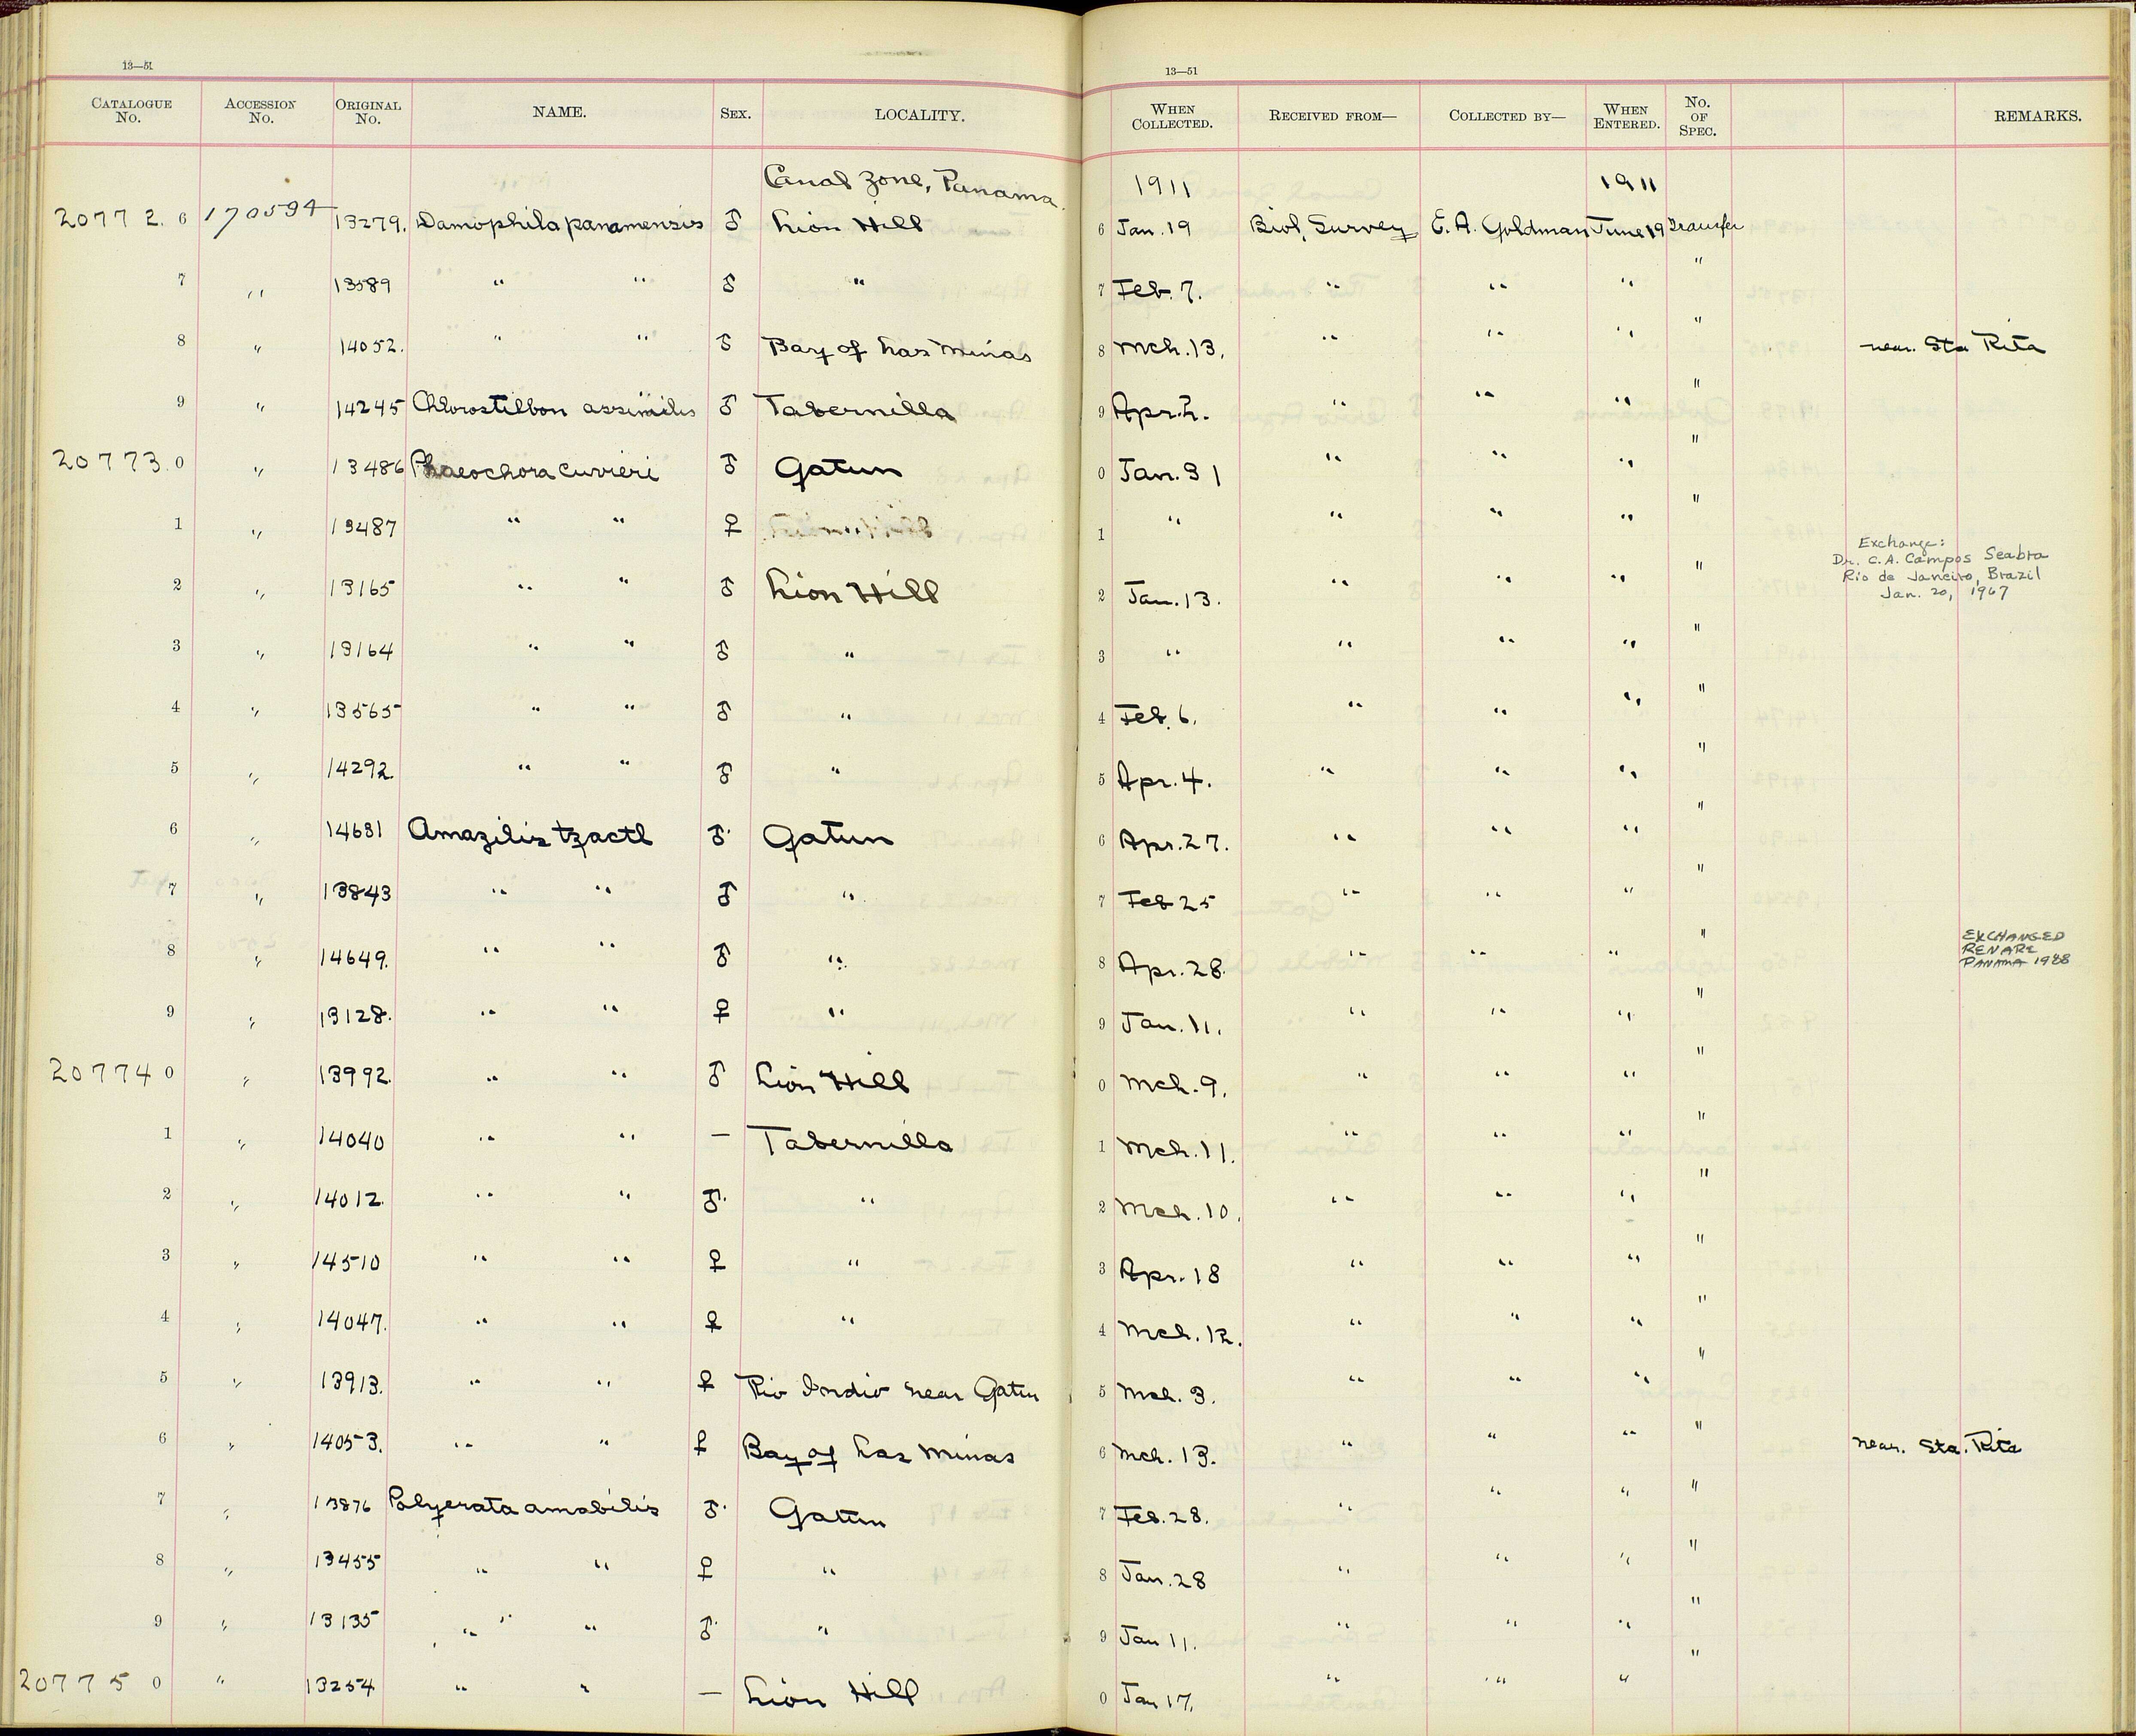 13—51 13—51
CATALOGUE No. ACCESSION No. ORIGINAL No. NAME. SEX. LOCALITY. WHEN COLLECTED. RECEIVED FROM— COLLECTED BY— WHEN ENTERED. No. OF SPEC. REMARKS.
Canal Zone, Panama. 1911 1911
20772.6 170594 13279. Damophila panamensis ♂ Lion Hill 6 Jan. 19 Biol. Survey E. A. Goldman June 19 Transfer
7 " 13589 " " ♂ " 7 Feb. 7. " " " "
8 " 14052. " " ♂ Bay of Las Minas 8 Mch. 13. " " " " near. Sta Rita
9 " 14245 Chlorostilbon assimilis ♂ Tabernilla 9 Apr. 2. " " " "
20773.0 " 13486 Phaeochora cuvieri ♂ Gatun 0 Jan. 31 " " " "
1 " 13487 " " ♀ 1 " " " " "
2 " 13165 " " ♂ Lion Hill 2 Jan. 13. " " " " Exchange:
Dr. C. A. Campos Seabra
Rio de Janeiro, Brazil
Jan. 20, 1967
3 " 13164 " " ♂ " 3 " " " " "
4 " 13565 " " ♂ " 4 Feb. 6. " " " "
5 " 14292. " " ♂ " 5 Apr. 4. " " " "
6 " 14631 Amazilis tzactl ♂ Gatun 6 Apr. 27. " " " "
7 " 13843 " " ♂ " 7 Feb 25 " " " "
8 " 14649. " " ♂ " 8 Apr. 28. " " " " EXCHANGED
RENARE
PANAMA 1988
9 " 13128. " " ♀ " 9 Jan. 11. " " " "
20774 0 " 13992. " " ♂ Lion Hill 0 Mch. 9. " " " "
1 " 14040 " " — Tabernilla 1 Mch. 11. " " " "
2 " 14012. " " ♂ " 2 Mch. 10. " " " "
3 " 14510 " " ♀ " 3 Apr. 18 " " " "
4 " 14047. " " ♀ " 4 Mch. 12. " " " "
5 " 13913. " " ♀ Rio Indio near Gatun 5 Mch. 3. " " " "
6 " 14053. " " ♀ Bay of Las Minas 6 Mch. 13. " " " " near. Sta. Rita
7 " 13876 Polyerata amabilis ♂ Gatun 7 Feb. 28. " " " "
8 " 13455 " " ♀ " 8 Jan. 28 " " " "
9 " 13135 " " ♂ " 9 Jan 11. " " " "
20775 0 " 13254 " " — Lion Hill 0 Jan 17. " " " "